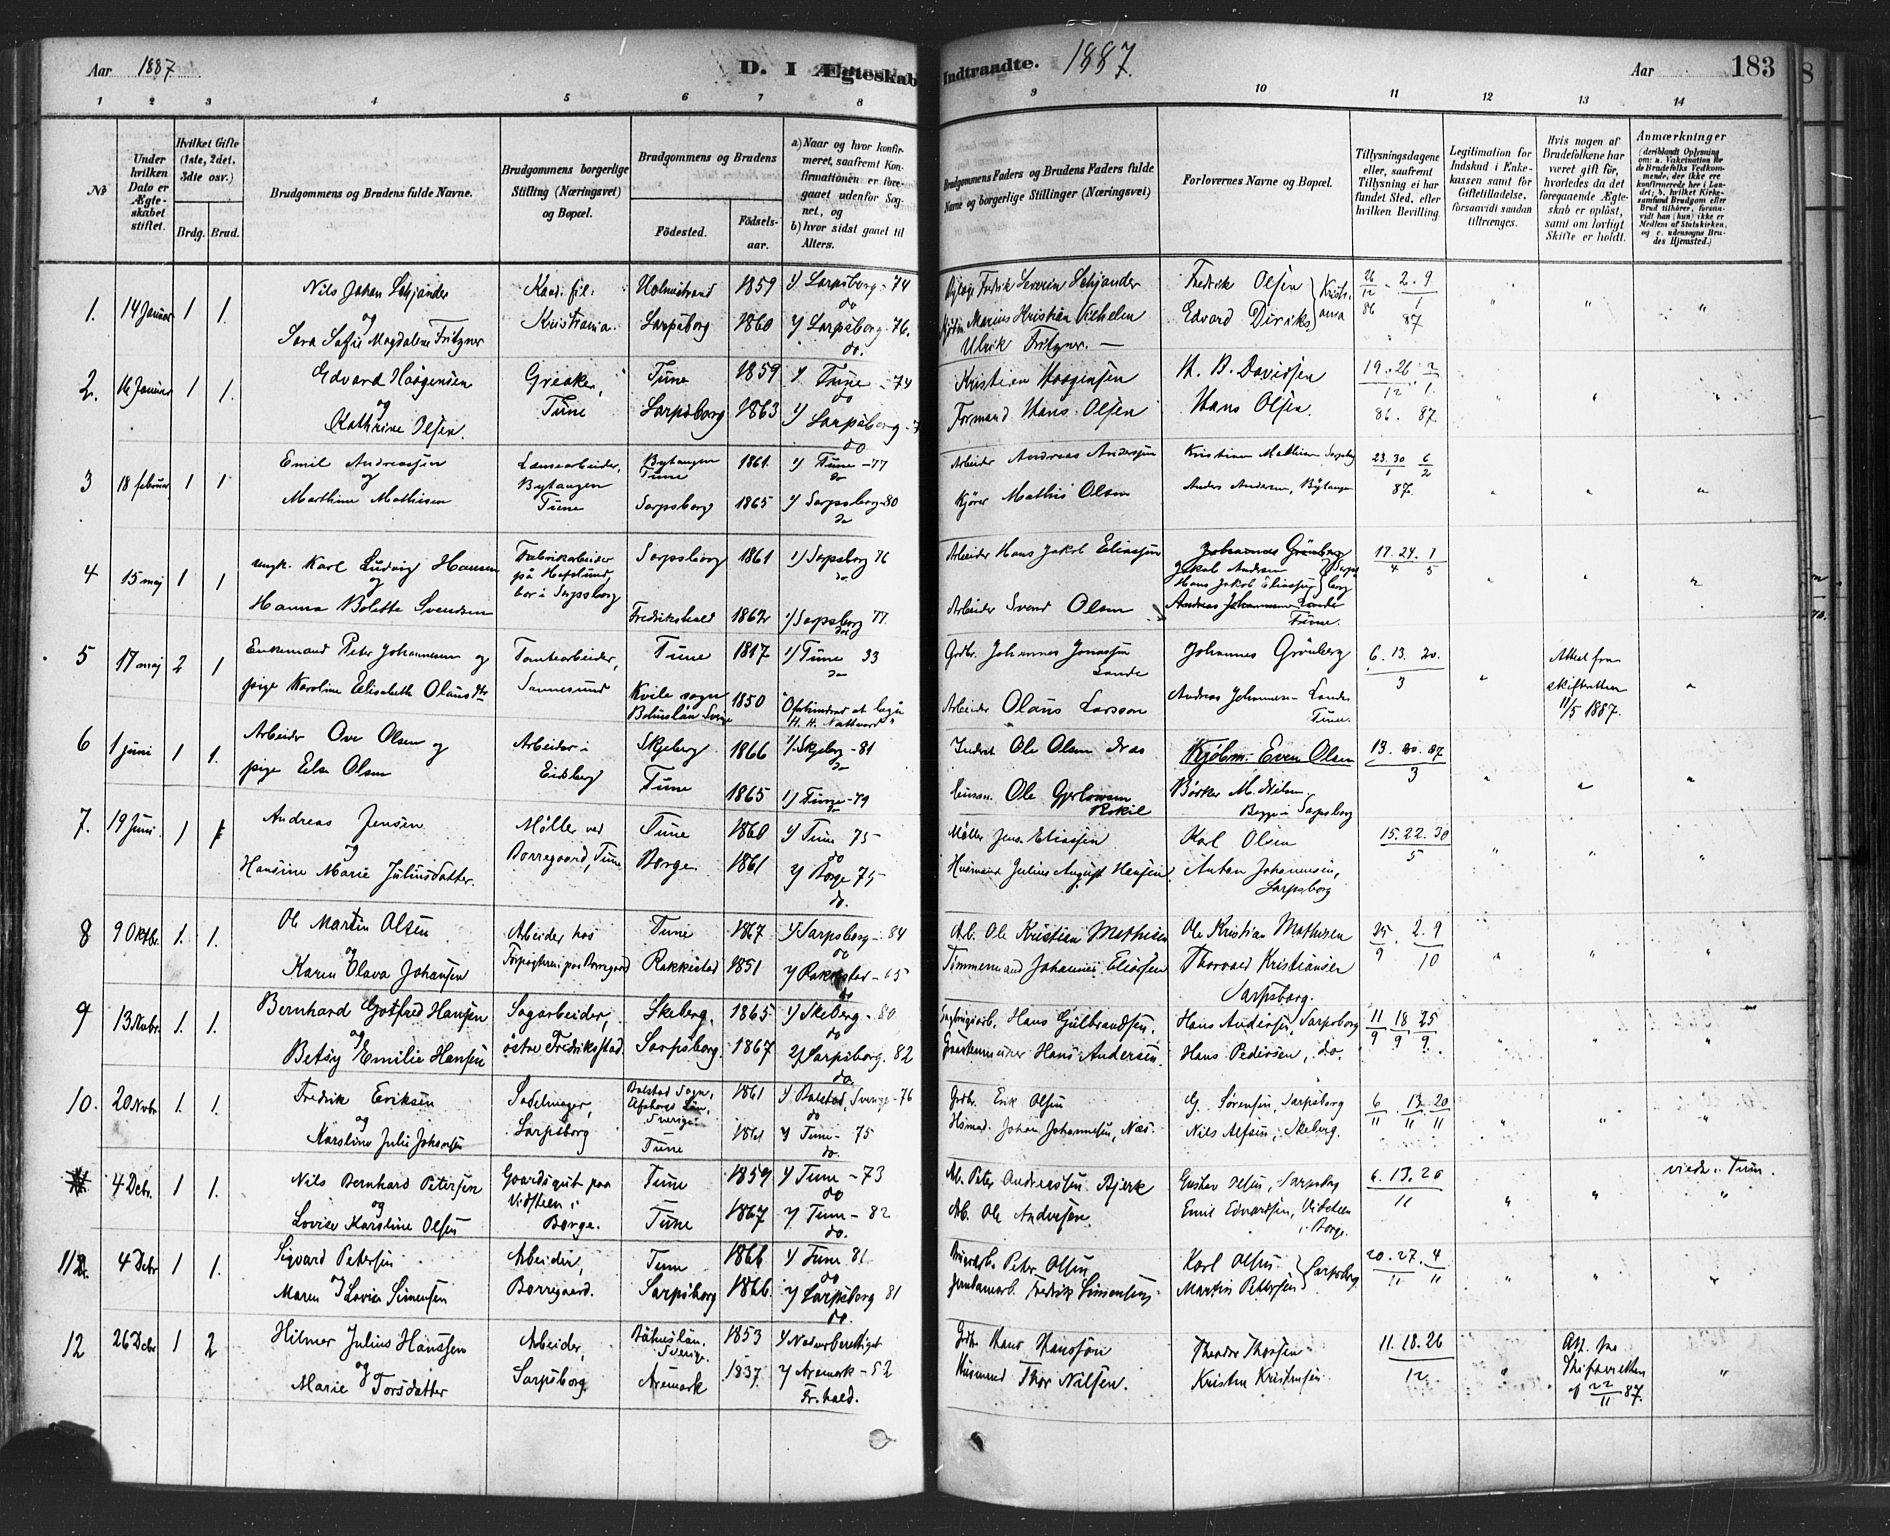 Aar 1887
D. I Ægteskab Indtraadte.
1887.
Aar
183
1 2 3 4 5 6 7 8 9 10 11 12 13 14
No
Under hvilken Dato er Ægteskabet stiftet.
Hvilket Gifte (1ste, 2det, 3die osv.)
Brdg. Brud.
Brudgommens og Brudens fulde Navne.
Brudgommens borgerlige Stilling (Næringsvei) og Bopæl.
Brudgommens og Brudens
Födested.
Födselsaar.
a) Naar og hvor konfirmeret, saafremt Konfirmationen er foregaaet udenfor Sognet, og
b) hvor sidst gaaet til Alters.
Brudgommens Faders og Brudens Faders fulde Navne og borgerlige Stillinger (Næringsvei)
Forlovernes Navne og Bopæl.
Tillysningsdagene eller, saafremt Tillysning ei har fundet Sted, efter hvilken Bevilling.
Legitimation for Indskud i Enkekassen samt for Giftetilladelse, forsaavidt saadan tiltrænges.
Hvis nogen af Brudefolkene har været gift för, hvorledes da det foregaaende Ægteskab er oplöst, samt om lovligt Skifte er holdt.
Anmærkninger
(deriblandt Oplysning om: a. Vakcination for de Brudefolks Vedkommende, der ikke ere konfirmerede her i Landet; b. hvilket Kirkesamfund Brudgom eller Brud tilhörer, forsaavidt han (hun) ikke er Medlem af Statskirken, og c. udensogns Brudes Hjemsted.)
1. 14 Januar 1 1. Nils Johan Schjander Kand. fil: Holmestrand 1859 1/ Sarpsborg - 74 Fredrik Severin Schjander Fredrik Olsen 26/12 86 . 2. 9 / 1 87
og do
Sara Sofie Magdalene Fritzner Kristiania. Sarpsborg 1860 1/ Sarpsborg - 76. Marius Kristian Vilhelm Edvard Diriks Kristiania
do. Ulrik Fritzner. —
2. 16 Januar 1 1. Edvard Haagensen Greaker, Tune 1859 1/ Tune - 74 Kristian Haagensen H. B. Davidsen 19. 26 / 12 86. 2 / 1. 87
og do
Kathrine Olsen. Tune Sarpsborg 1863 1/ Sarpsborg Formand Hans Olsen Hans Olsen.
do
3 18 februar 1 1 Emil Andreassen Lænsearbeider, Bytangen Tune 1861. 1/ Tune - 77 Arbeider Andreas Andersen Kristian Mathisen Sarpsborg 23. 30 / 1 6 / 2 87.
og Bytangen do
Marthine Mathisen Tune Sarpsborg 1865 1/ Sarpsborg - 80 Kjører Mathis Olsen Anders Andersen, Bytangen
do
4 15 maj 1 1 ungk. Karl Ludvig Hansen Fabrikarbeider Sarpsborg 1861 1/ Sarpsborg 76 Arbeider Hans Jakob Eliassen Johannes Grönberg 17. 24 / 4 1 / 5
og på Hafslund, do Jakob Andersen
bor i Sarpsborg Hans Jakob Eliassen Sarpsborg
Hanna Bolette Svendsen Fredrikshald 1862 1/ Sarpsborg 77. Arbeider Svend Olsen Andreas Johannesen Lande
do Tune.
5 17 maj 2 1 Enkemand Peter Johannesen og Tomtearbeider, Tune 1817 1/ Tune 33 Grdbr. Johannes Jonassen Lande Johannes Grönberg 6. 13. 20. / 3 Attest fra skifteretten 11/5 1887.
Sannesund do
pige Karoline Elisabeth Olausdtr Kville sogn Bohuslän Sverige 1850 Arbeider Olaus Larsson Andreas Johannesen Lande
H. H. Nattvard" Tune.
6 1 juni 1 1. Arbeider Ove Olsen og Arbeider i Skjeberg 1866 1/ Skjeberg - 81 Inderst Ole Olsen Kjøbm. Even Olsen 13. 20. 27 / 3
pige Else Olsen Eidsberg do
Tune 1865 1/ Tune - 79 Ole Børker M. Nielsen
Begge i Sarpsborg
7. 19 Juni. 1 1 Andreas Jensen Møller ved Tune 1860 1/ Tune 75 - Møller Jens Eliassen Karl Olsen 15. 22. 30 / 5
og do
Hansine Marie Juliusdatter. Borregaard, Tune Borge. 1861 1/ Borge 75 Husmand Julius August Hansen Anton Johannesen,
do. Sarpsborg
8 9 Oktbr. 1. 1. Ole Martin Olsen Arbeider hos Tune 1867 1/ Sarpsborg - 84 Arb. Ole Kristian Mathisen Ole Kristian Mathisen 25 / 9 . 2. 9 / 10
og do
Karen Olava Johansen Forpagteren paa Borregaard Rakkestad 1851 1/ Rakkestad - 65 Timmermand Johannes Eliassen Thorvald Kristiansen
do Sarpsborg.
9 13. Novbr. 1. 1. Bernhard Gotfred Hansen Sagarbeider, Skeberg. 1865 1/ Skeberg - 80 Hans Gulbrandsen. Hans Andersen, Sarpsborg 11/9 18/9 25/9.
og do
Betsy Emilie Hansen østre Fredrikstad Sarpsborg. 1867 2/ Sarpsborg. 82 Hans Andersen Hans Pedersen, do.
do
10. 20 Novbr. 1. 1. Fredrik Eriksen Sadelmager, Bolstad Sogn, Elfsborgs Län, Sverige 1861 1/ Bolstad, Sverige - 76 Grdbr. Erik Olsen G. Sørensen, Sarpsborg 6/11 . 13/11 20/11
og do
Karoline Julie Johansen Sarpsborg Tune 1861 1/ Tune - 75 Hsmd. Johan Johannesen, Næs Nils Alfsen, Skeberg.
do.
4 Debr. 1 1. Nils Bernhard Petersen Gaardsgut paa Tune 1859 1/ Tune - 73 Arb. Peter Andreassen Bjerk Gustav Olsen, Sarpsborg 6. 13. 20 / 11 viede i Tune.
og Vidsteen i do
Lovise Karoline Olsen Borge. Tune 1867 1/ Tune - 82 Arb. Ole Andersen Emil Edvardsen, Visteen
do. i Borge.
11 4 Debr 1 1. Sigvard Petersen Arbeider, Tune 1866 1/ Tune 81 Peter Olsen Karl Olsen 20. 27. 4 / 11
og do
Maren Lovise Simensen Borregaard. Sarpsborg 1866 1/ Sarpsborg 81 Fredrik Simensen Martin Pettersen Sarpsborg
do.
12 26 Debr 1 2 Hilmer Julius Hanssen Arbeider, Båhuslän, Sverige. 1853 1/ Nadverberettiget Grdb. Hans Hansson Theodor Thorsen 11. 18. 26 / 12 Att. fra Skifteretten af 22/11 87.
og
Marie Torsdatter Sarpsborg. Aremark 1837. 1/ Aremark - 52 Husmand Thor Nilsen. Kristen Kristensen
Fr.hald.